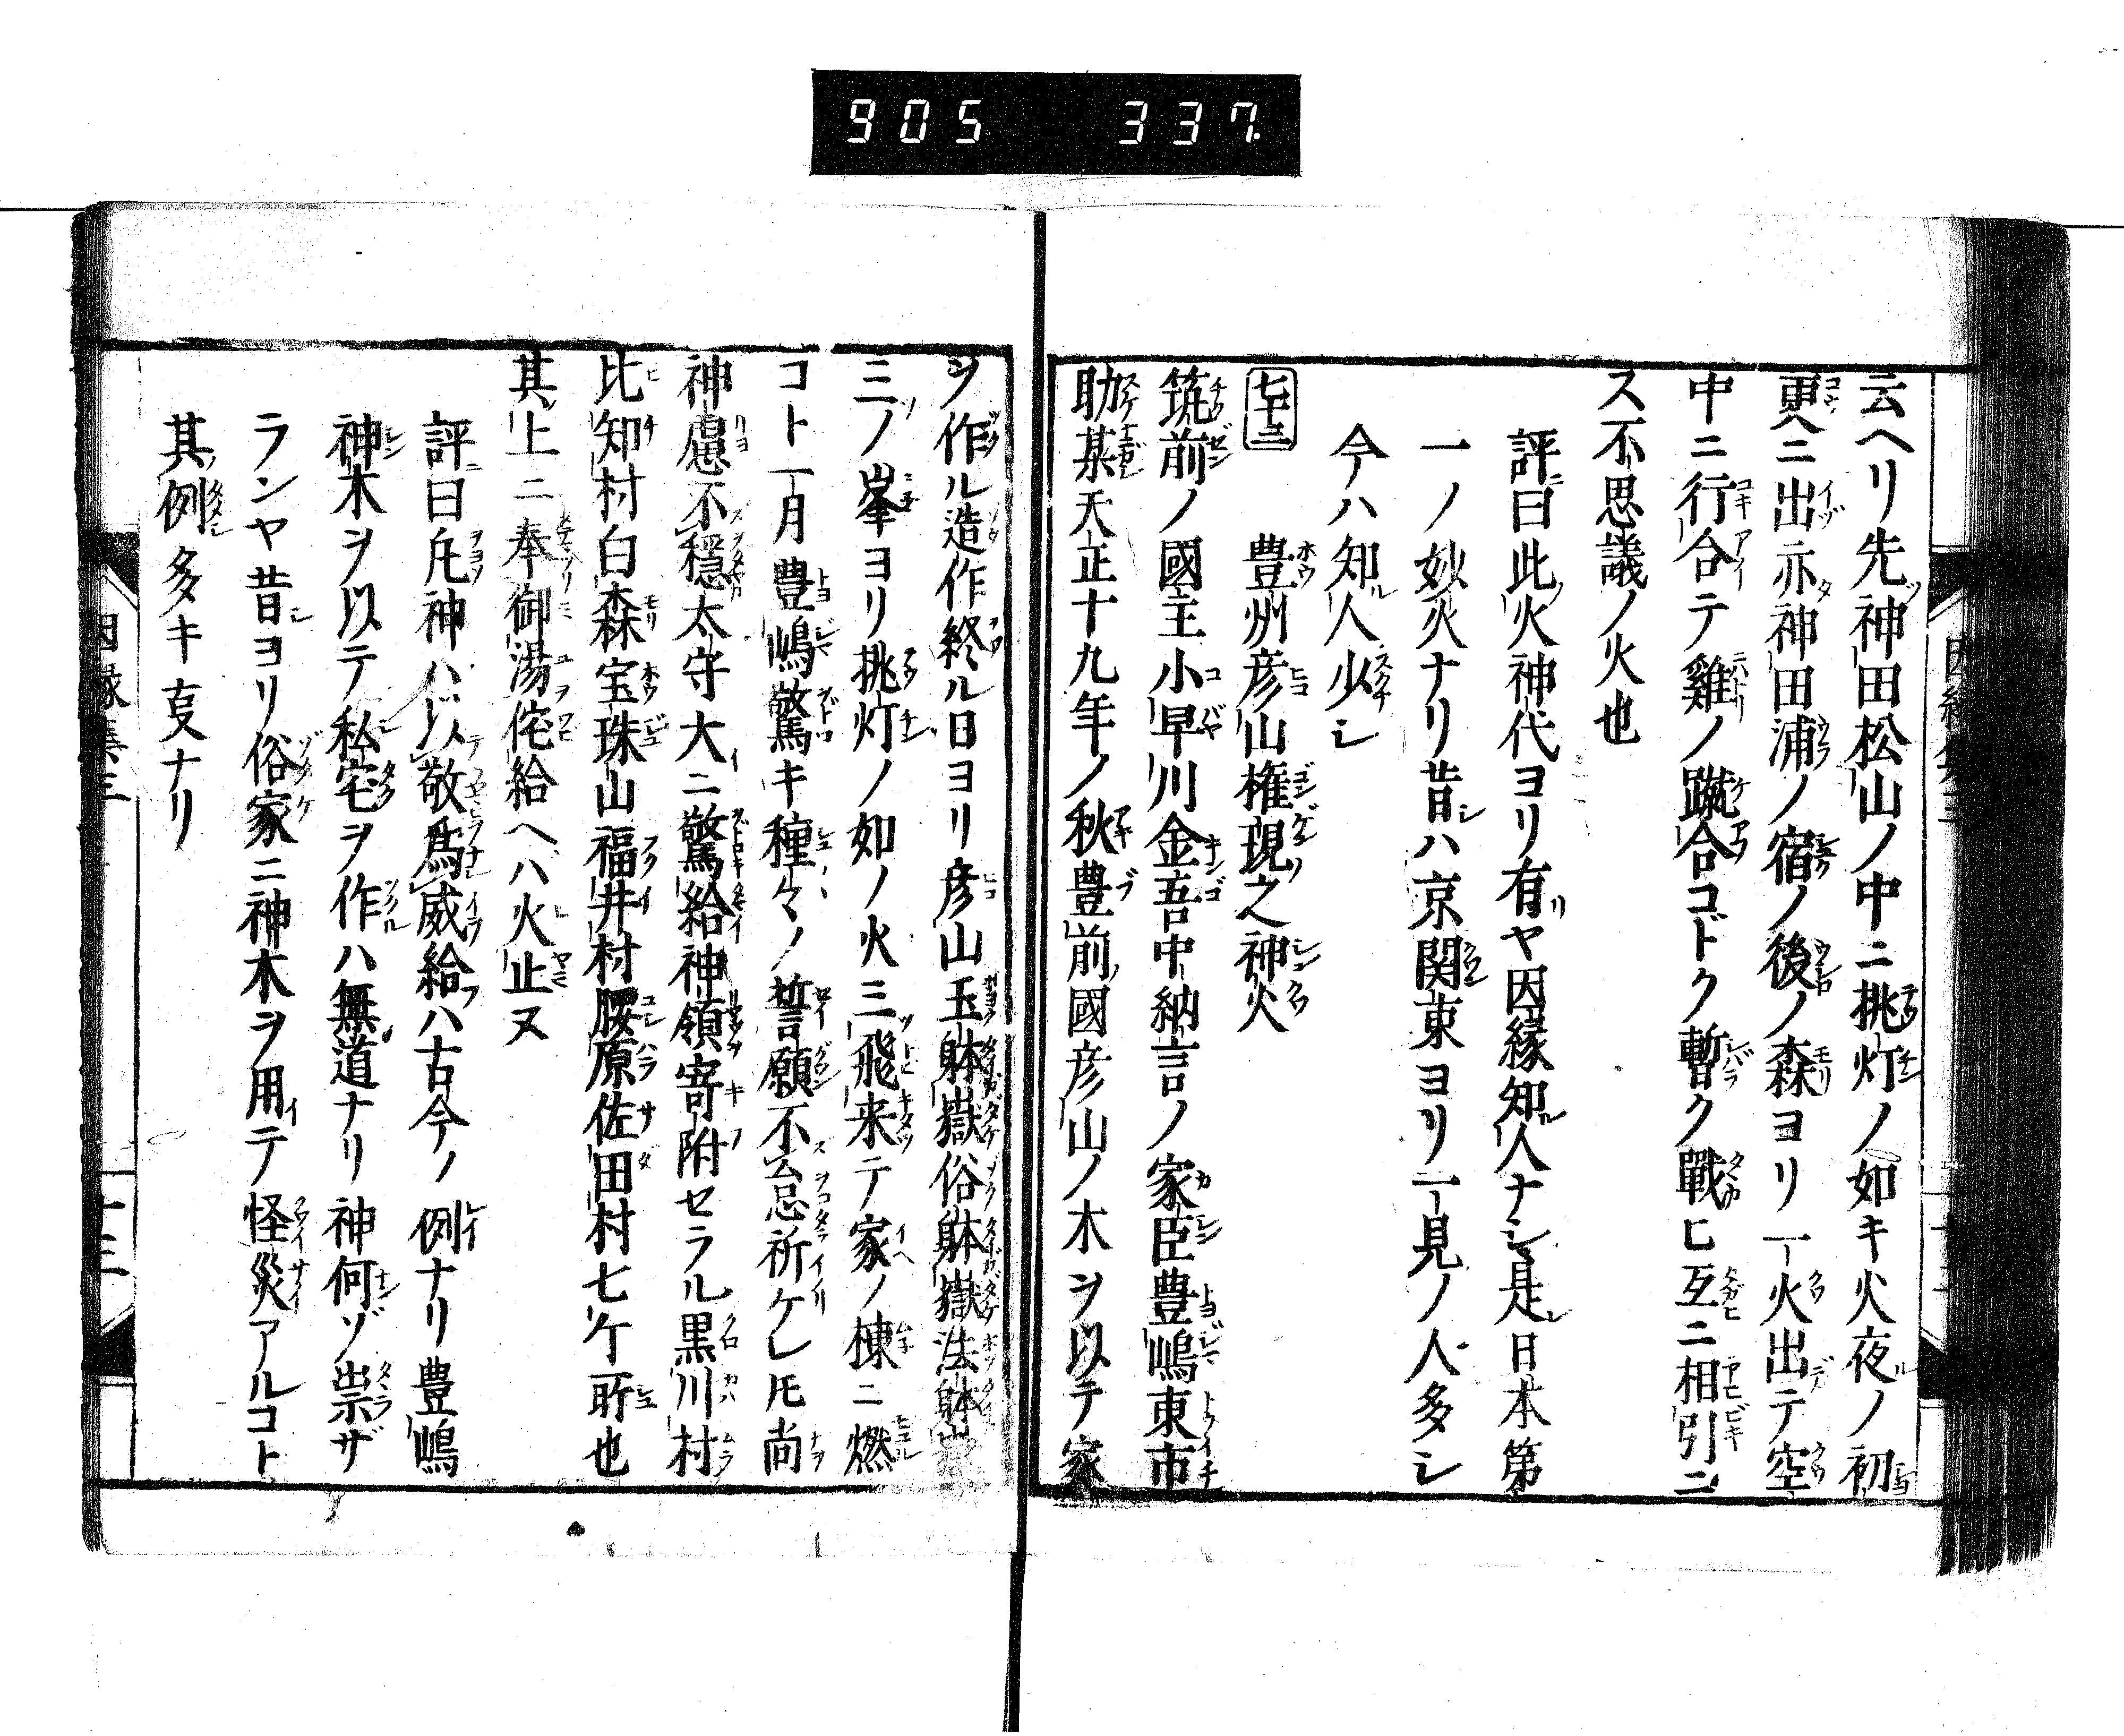 905 337
云ヘリ先神田松山ノ中ニ挑灯ノ如キ火夜ノ初
更ニ出亦神田浦ノ宿ノ後ノ森ヨリ一火出テ空
中ニ行合テ雞ノ蹴合コドク暫ク戰ヒ互ニ相引ニ
ス不思議ノ火也
評曰此火神代ヨリ有ヤ因縁知人ナシ是日本第
一ノ妙火ナリ昔ハ京関東ヨリ一見ノ人多シ
今ハ知人少シ
七十三 豊州彦山権現之神火
筑前ノ國主小早川金吾中納言ノ家臣豊嶋東市
助某天正十九年ノ秋豊前國彦山ノ木ヲ以テ家
ヲ作ル造作終ル日ヨリ彦山玉躰嶽俗躰嶽法躰嶽
三ノ峯ヨリ挑灯ノ如ノ火三飛来テ家ノ棟ニ燃
コト一月豊嶋驚キ種々ノ誓願不怠祈ケレ𪜈尚
神慮不穏太守大ニ驚給神領寄附セラル黒川村
比知村白森宝珠山福井村腰原佐田村七ケ所也
其上ニ奉御湯侘給ヘハ火止ヌ
評曰凡神ハ以敬為威給ハ古今ノ例ナリ豊嶋
神木ヲ以テ私宅ヲ作ハ無道ナリ神何ゾ祟ザ
ランヤ昔ヨリ俗家ニ神木ヲ用テ怪災アルコト
其例多キ𠫵ナリ
因縁集三
十三